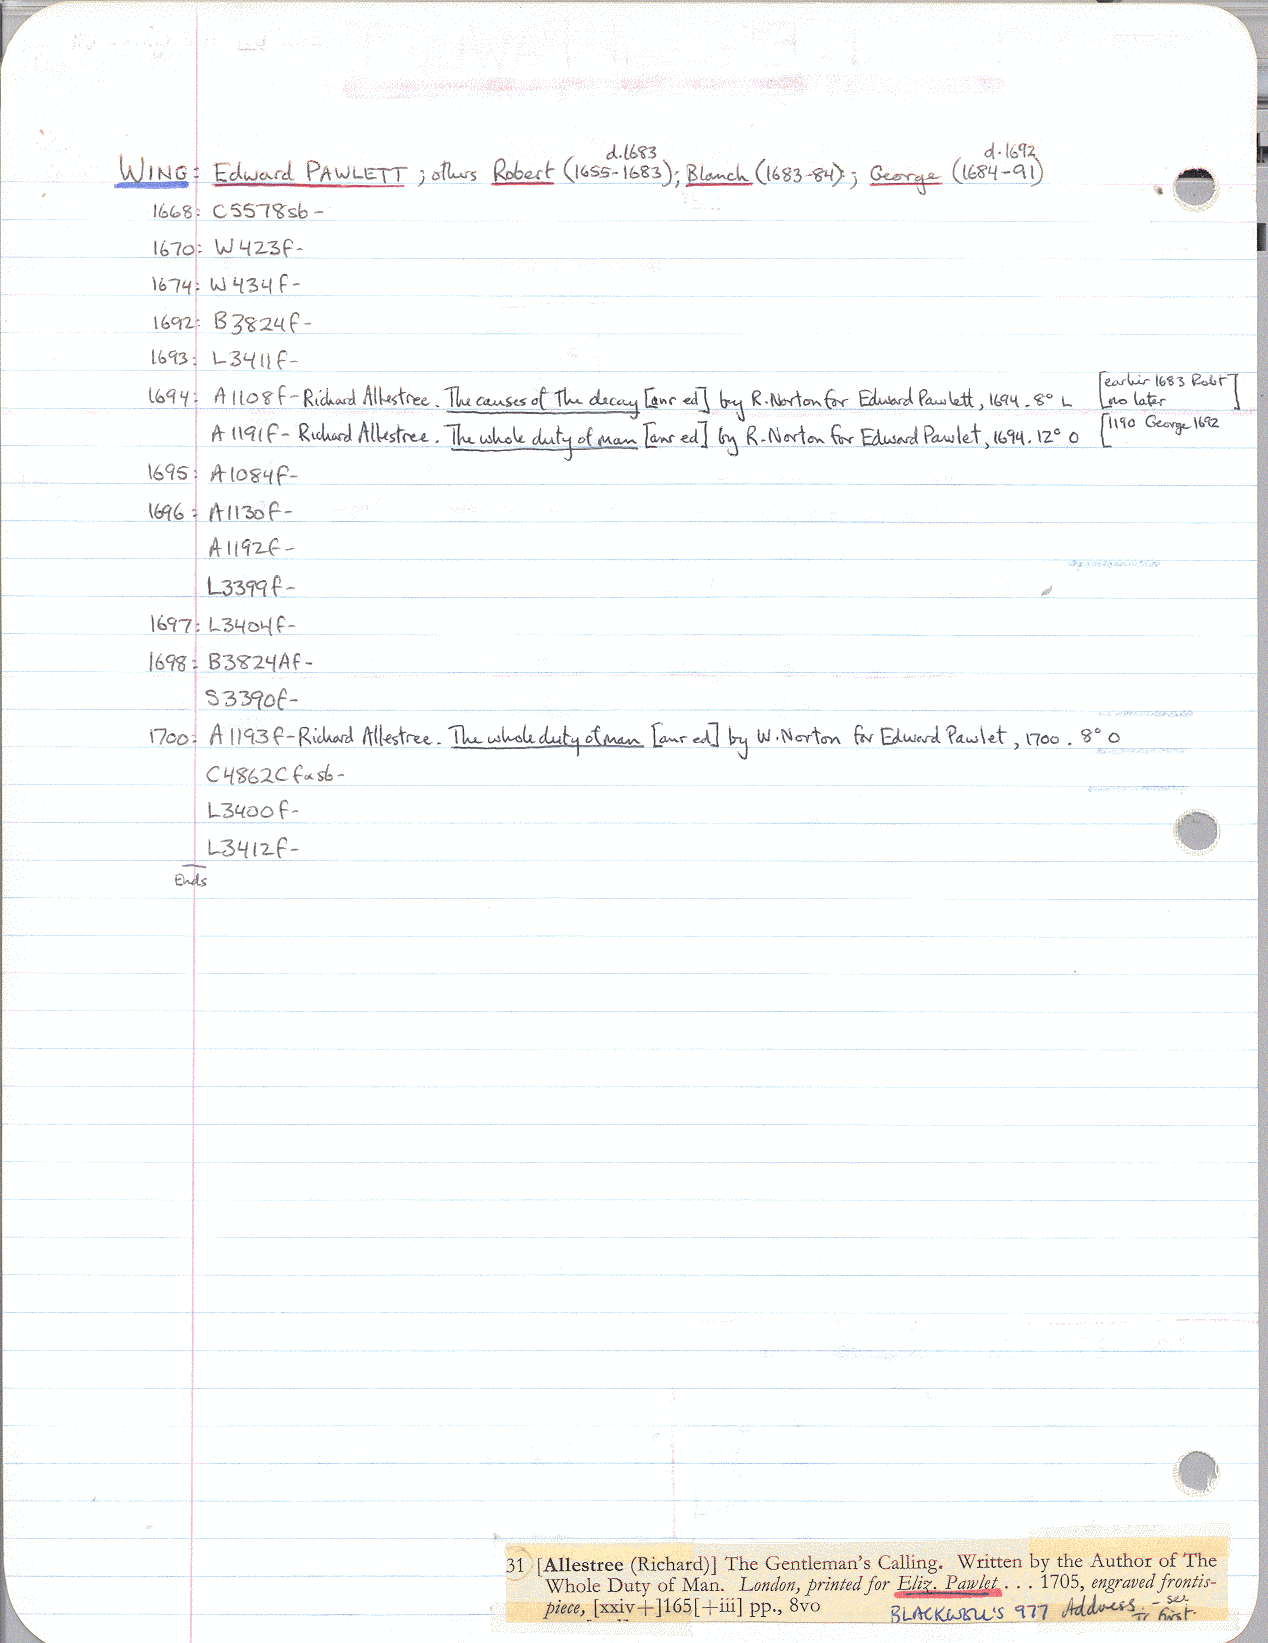 d.1683 d.1692
WING: Edward PAWLETT ; others Robert (1655-1683); Blanch (1683-84); George (1684-91)
1668: C5578sb -
1670: W423f-
1674: W434f-
1692: B3824f-
1693: L3411f-
[earlier 1683 Robt]
1694: A1108f- Richard Allestree. The causes of The decay [anr ed] by R. Norton for Edward Pawlett, 1694. 8° L [no later
A1191f- Richard Allestree. The whole duty of man [anr ed] by R. Norton for Edward Pawlet, 1694. 12° O [1190 George 1692
1695: A1084f-
1696: A1130f-
A1192f-
L3399f-
1697: L3404f-
1698: B3824Af-
S3390f-
1700: A1193f- Richard Allestree. The whole duty of man [anr ed] by W. Norton for Edward Pawlet, 1700. 8° O
C4862C f sb-
L3400f-
L3412f-
Ends
31 [Allestree (Richard)] The Gentleman's Calling. Written by the Author of The
Whole Duty of Man. London, printed for Eliz. Pawlet . . . 1705, engraved frontis-
piece, [xxiv+]165[+iii] pp., 8vo BLACKWELL'S 977 Address - see
first.